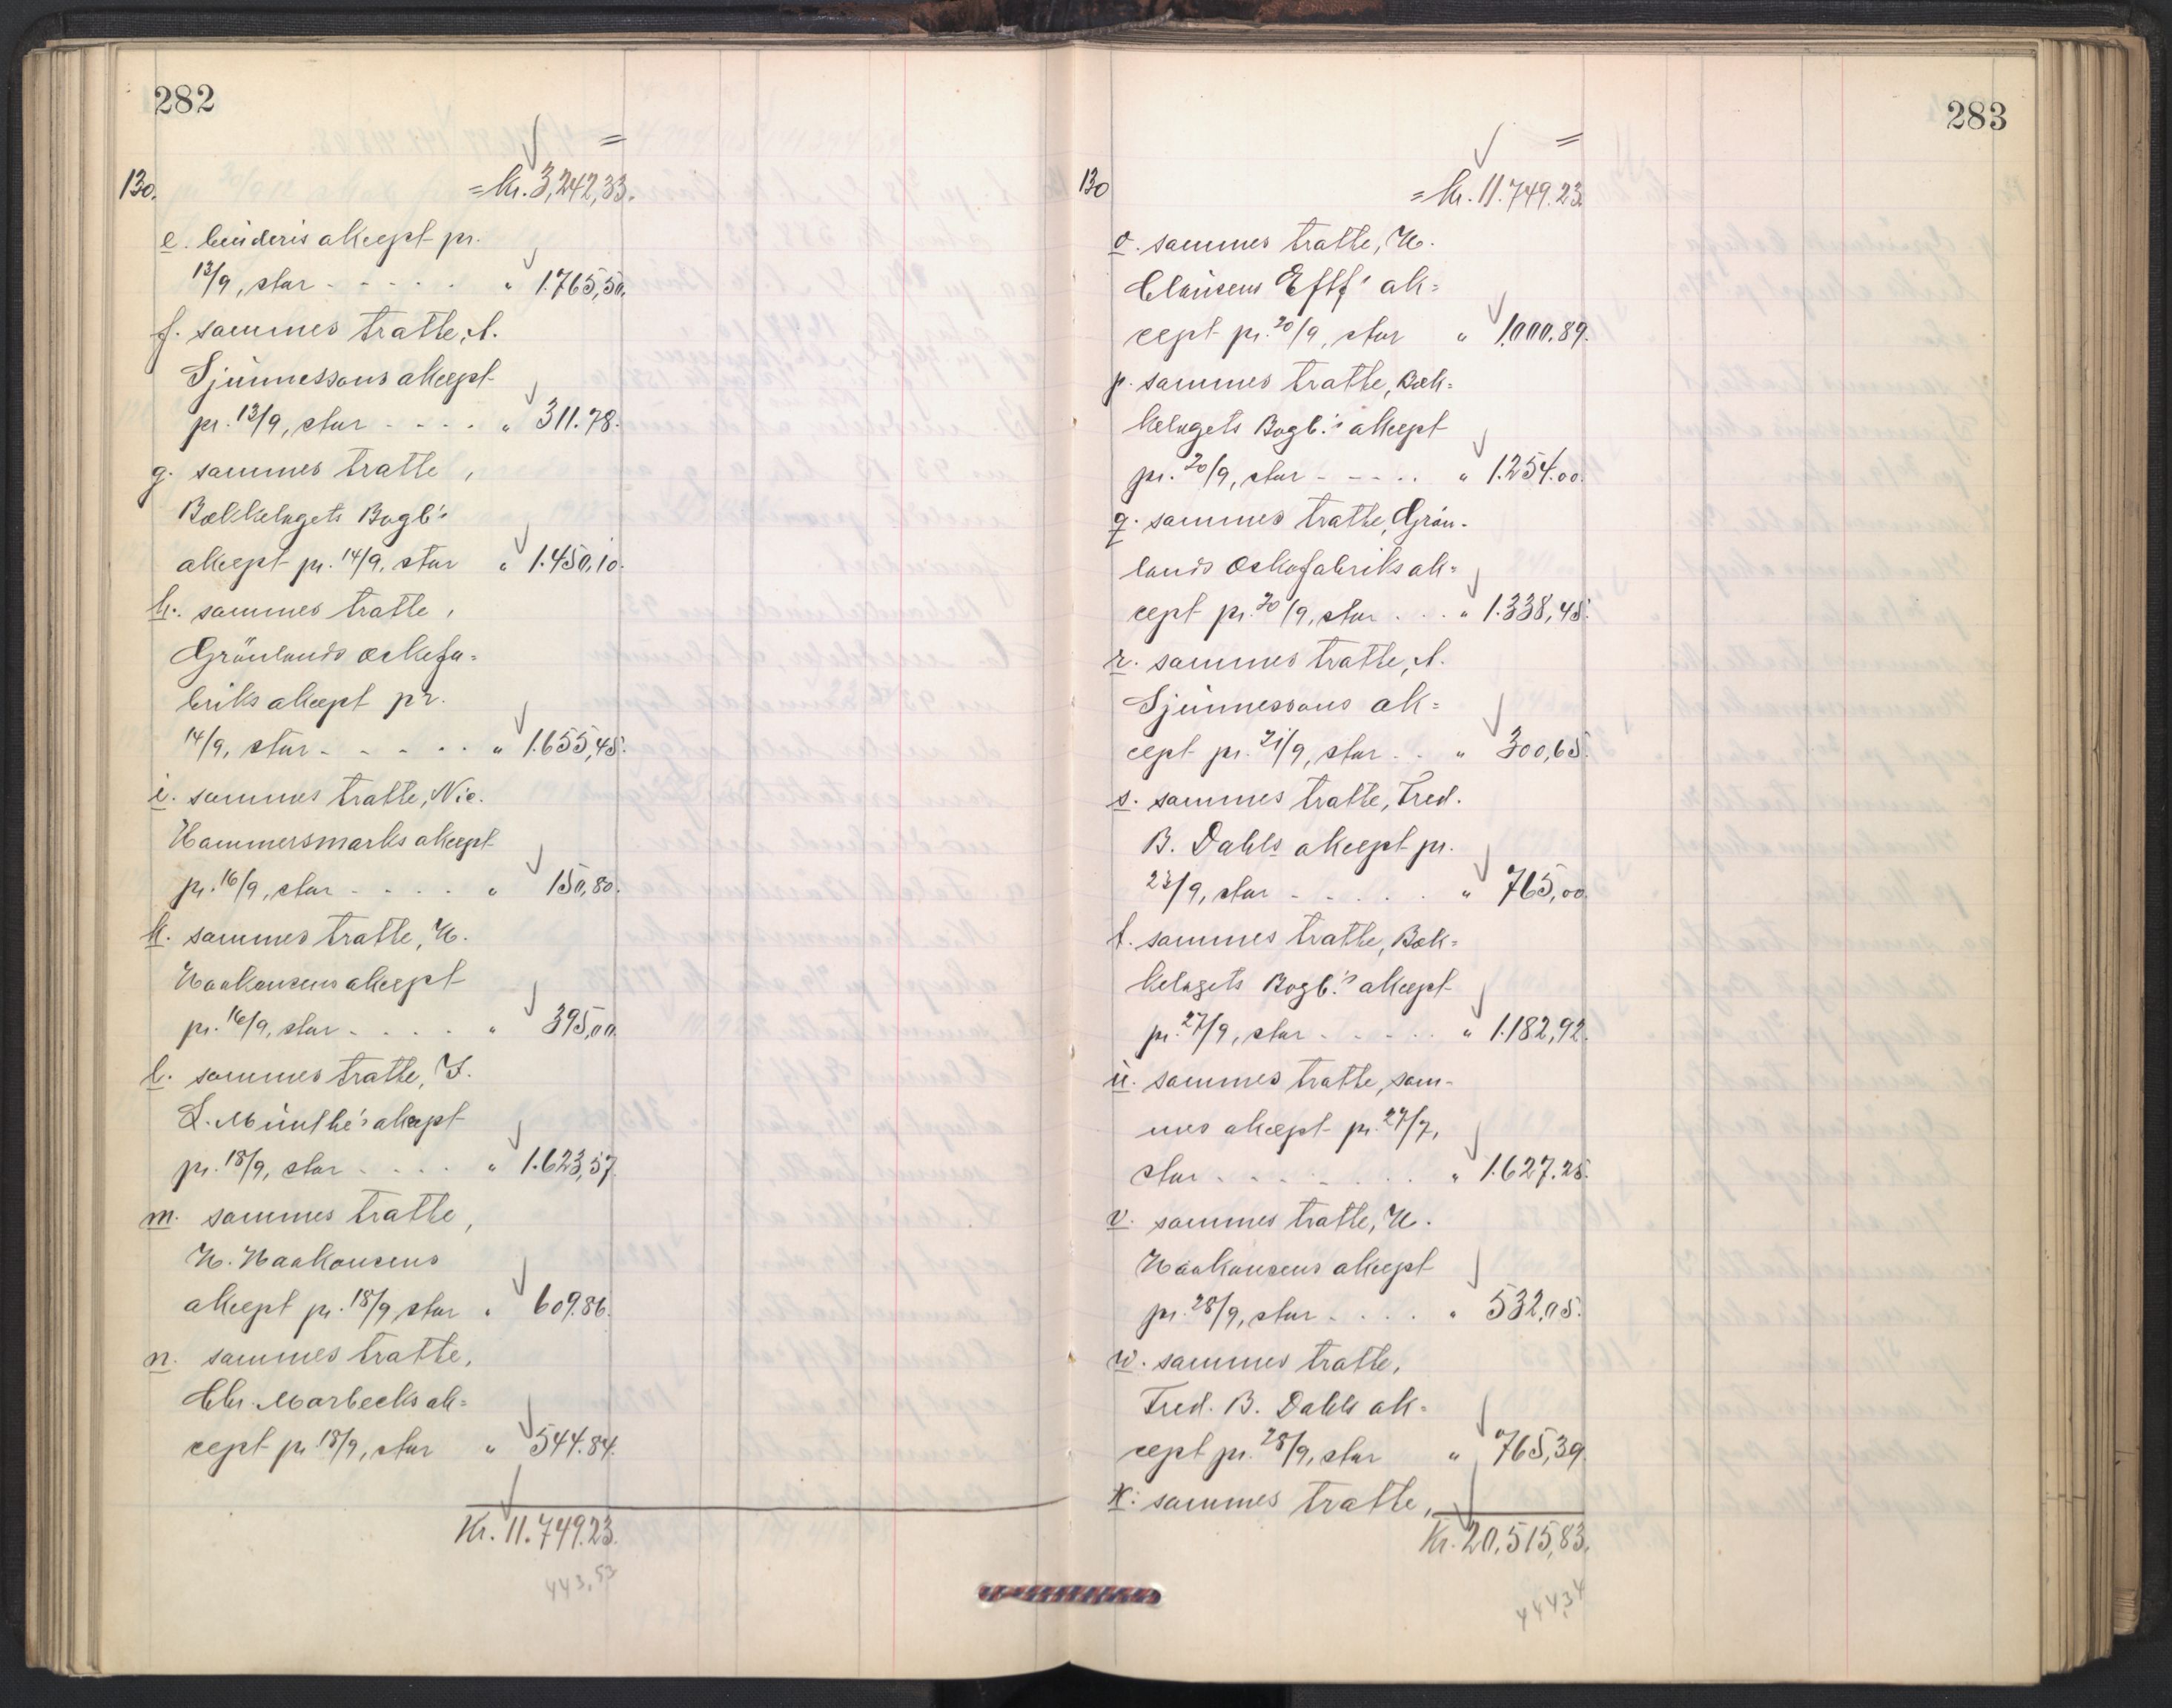 282
130. = Kr. 3,242,33.
e. Cinderis akcept pr.
13/9, stor - - - - - " 1.765,50.
f. sammes tratte, A.
Sjünnessons akcept
pr. 13/9, stor - - - . " 311.78.
g. sammes tratte,
Bækkelagets Bogb's
akcept pr. 14/9, stor " 1.450,10.
h. sammes tratte,
Grönlands æskefa=
briks akcept pr.
14/9, stor - - - - . . " 1.655,45.
i. sammes tratte, Nic.
Hammersmarks akcept
pr. 16/9, stor - - - . . " 150,80.
k. sammes tratte, H.
Haakonsens akcept
pr. 16/9, stor - . . . . " 395,00.
l. sammes tratte, J.
L. Münthe's akcept
pr. 18/9, stor - - . . " 1.623,57.
m. sammes tratte,
H. Haakonsens
akcept pr. 18/9 stor " 609.86.
n. sammes tratte,
Chr. Morbecks ak=
cept pr. 18/9, stor " 544.84.
Kr. 11.749.23.
443,53
283
130 = Kr. 11.749.23.
o. sammes tratte, H.
Clausens Eftf's ak=
cept pr. 20/9, stor " 1.000.89.
p. sammes tratte, Bæk=
kelagets Bogb.'s akcept
pr. 20/9, stor - - - . . " 1.254.00.
q. sammes tratte, Grön-
lands Æskefabriks ak=
cept pr. 20/9, stor . . . " 1.338,45.
r. sammes tratte, A.
Sjünnessons ak=
cept pr. 21/9, stor . . " 300,65.
s. sammes tratte, Fred.
B. Dahls akcept pr.
23/9, stor - - . . . . " 765,00.
t. sammes tratte, Bæk=
kelagets Bogb.'s akcept
pr. 27/9, stor - - - . . " 1.182,92.
ü. sammes tratte, sam-
mes akcept pr. 27/9,
stor . - - - . . . " 1.627.25.
v. sammes tratte, H.
Haakonsens akcept
pr. 28/9, stor . . . . " 532,05.
w. sammes tratte,
Fred. B. Dahls ak=
cept pr. 28/9, stor " 765,39.
x. sammes tratte,
Kr. 20.515,83.
444,34